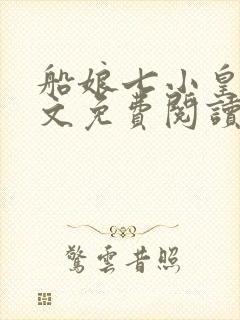 船娘七小皇
文免費閱讀
驚雲昔照